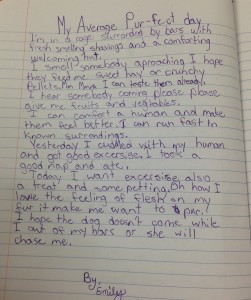 My Average Pur-fect day
I'm in a cage surrorded by bars with
fresh smelling shavings and a comforting
welcoming hut.
I smell somebody aproaching I hope
they feed me sweet hay or crunchy
pellets. Mm Mmya I can taste them already.
I hear somebody coming please please
give me fruits and vegtables.
I can comfort a human and make
them feel better. I can run fast in
known surroundings.
Yesterday I cuddled with my human
and got good excersise. I took a
good nap and ate.
Today I want excersise also
a treat and some petting. Oh how I
love the feeling of flesh on my
fur it make me want to purr.
I hope the dog doesn't come while
I out of my bars or she will
chase me.
By:
Emily